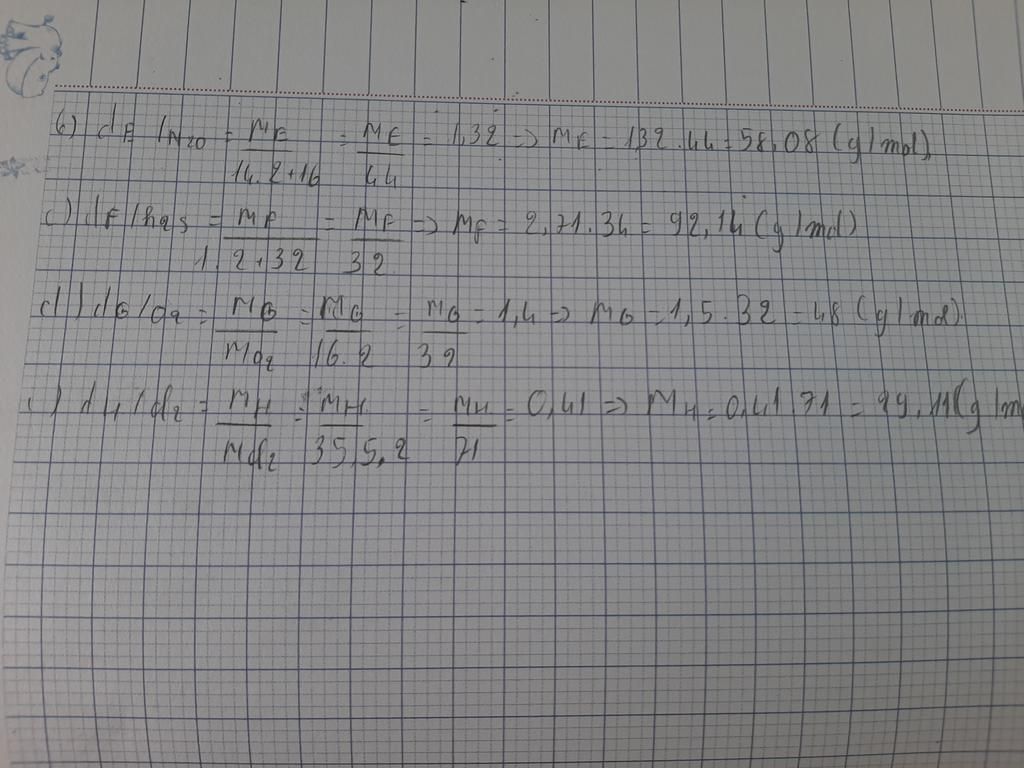 b) dE/N2O = ME/14.2+16 = ME/44 = 1,32 => ME = 1,32.44 = 58,08 (g/mol)
c) dF/h2s = MF/1.2+32 = MF/32 => MF = 2,71.34 = 92,14 (g/mol)
d) dG/O2 = MG/MO2 = MG/16.2 = MG/32 = 1,4 => MG = 1,5.32 = 48 (g/mol)
dH/cl2 = MH/Mcl2 = MH/35,5.2 = MH/71 = 0,41 => MH = 0,41.71 = 29,11 (g/m